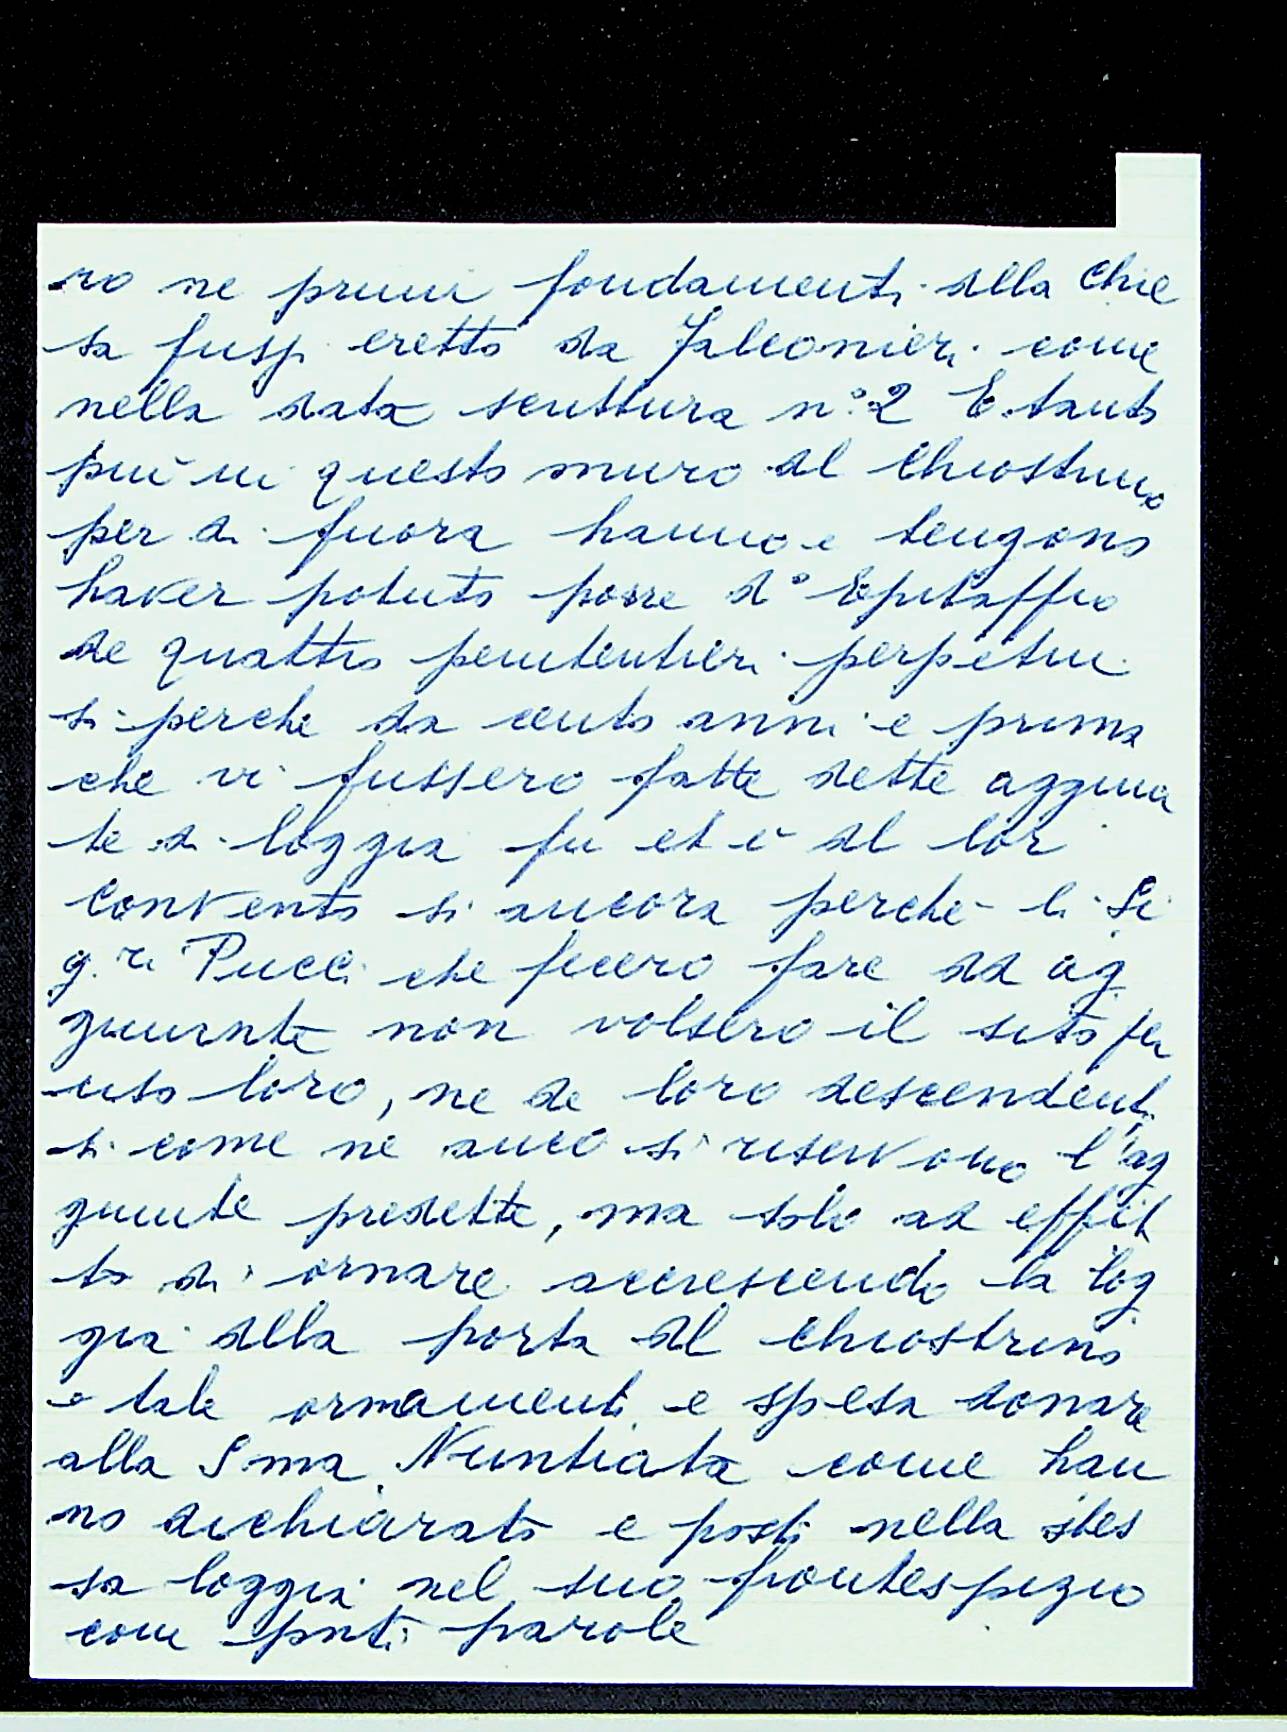 ro ne primi fondamenti della Chie
sa fusp. eretto da Falconieri come
nella data scrittura n.° 2 E tanto
più in questo muro del Chiostrino
per di fuora hanno e tengono
haver potuto porre d.° Epitaffio
de quattro penitentieri perpetui
si perche da cento anni e prima
che vi fussero fatte dette aggiun
te di loggia fu et è del lor
convento si ancora perche li Si
g.ri Pucci che fecero fare dd ag
giunte non volsero il sito per
uso loro, ne de loro descendenti
si come ne anco si riservono l'ag
giunte predette, ma solo ad effet
to di ornare accrescendo la log
gia della porta del Chiostrino
e tale ornamenti e spesa donare
alla S ma Nuntiata come han
no dichiarato e posto nella stes
sa loggia nel suo frontespizio
com pnti parole